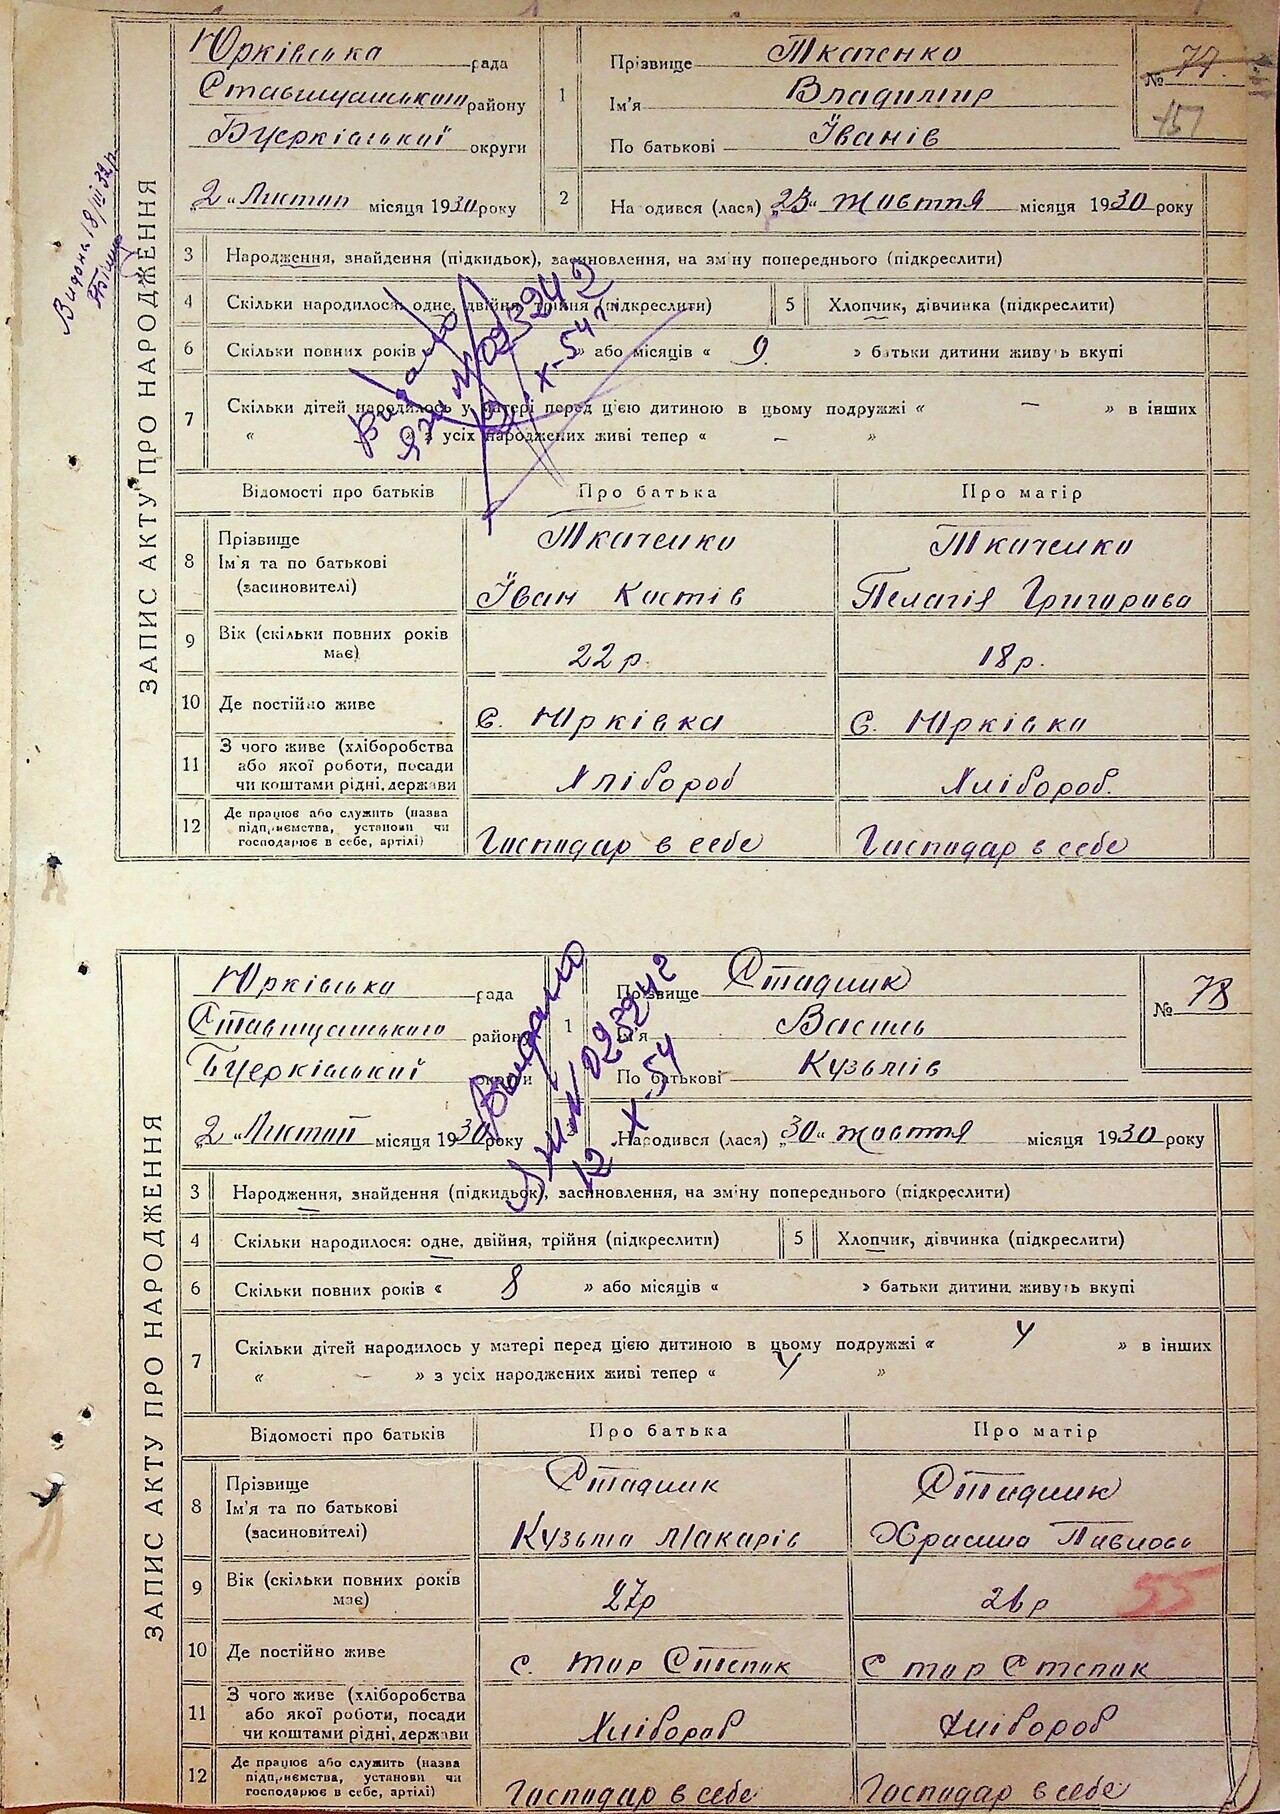 ЗАПИС АКТУ ПРО НАРОДЖЕННЯ
Видана 18/III 32 р.
Юрківська рада
Ставищанського району
Бцерківської округи
„2" Листоп місяця 1930 року
1 Прізвище Ткаченко
Ім'я Владимир
По батькові Їванів
№ 77.
2 На одився (лася) „23" жовтня місяця 1930 року
3 Народження, знайдення (підкидьок), засиновлення, на зміну попереднього (підкреслити)
4 Скільки народилося: одне, двійня, трійня (підкреслити) 5 Хлопчик, дівчинка (підкреслити)
6 Скільки повних років або місяців « 9 » батьки дитини живуть вкупі
7 Скільки дітей народилось у матері перед цією дитиною в цьому подружжі « — » в інших
« » з усіх народжених живі тепер « — »
Видано
ЯЖ №023242
12/X-54 г.
Відомості про батьків Про батька Про матір
8 Прізвище Ткаченко Ткаченко
Ім'я та по батькові
(засиновителі) Їван Костів Пелагія Григорова
9 Вік (скільки повних років
має) 22 р. 18 р.
10 Де постійно живе с. Юрківка с. Юрківка
11 З чого живе (хліборобства
або якої роботи, посади
чи коштами рідні, держави Хлібороб Хлібороб.
12 Де працює або служить (назва
підприємства, установи чи
господарює в себе, артілі) Господар в себе Господар в себе
ЗАПИС АКТУ ПРО НАРОДЖЕННЯ
Юрківська рада
Ставищанського району
Бцерківської округи
„2" Листоп місяця 1930 року
1 Прізвище Стадник
Ім'я Василь
По батькові Кузьмів
№ 78
Народився (лася) „30" жовтня місяця 1930 року
Видано
ЯЖ №023242
12-X-54
3 Народження, знайдення (підкидьок), засиновлення, на зміну попереднього (підкреслити)
4 Скільки народилося: одне, двійня, трійня (підкреслити) 5 Хлопчик, дівчинка (підкреслити)
6 Скільки повних років « 8 » або місяців « » батьки дитини живуть вкупі
7 Скільки дітей народилось у матері перед цією дитиною в цьому подружжі « 4 » в інших
« — » з усіх народжених живі тепер « 4 »
Відомості про батьків Про батька Про матір
8 Прізвище Стадник Стадник
Ім'я та по батькові
(засиновителі) Кузьма Макарів Павлова
9 Вік (скільки повних років
має) 27 р 26 р
55
10 Де постійно живе с. с
11 З чого живе (хліборобства
або якої роботи, посади
чи коштами рідні, держави Хлібороб Хлібороб
12 Де працює або служить (назва
підприємства, установи чи
господарює в себе, артілі) Господар в себе Господар в себе